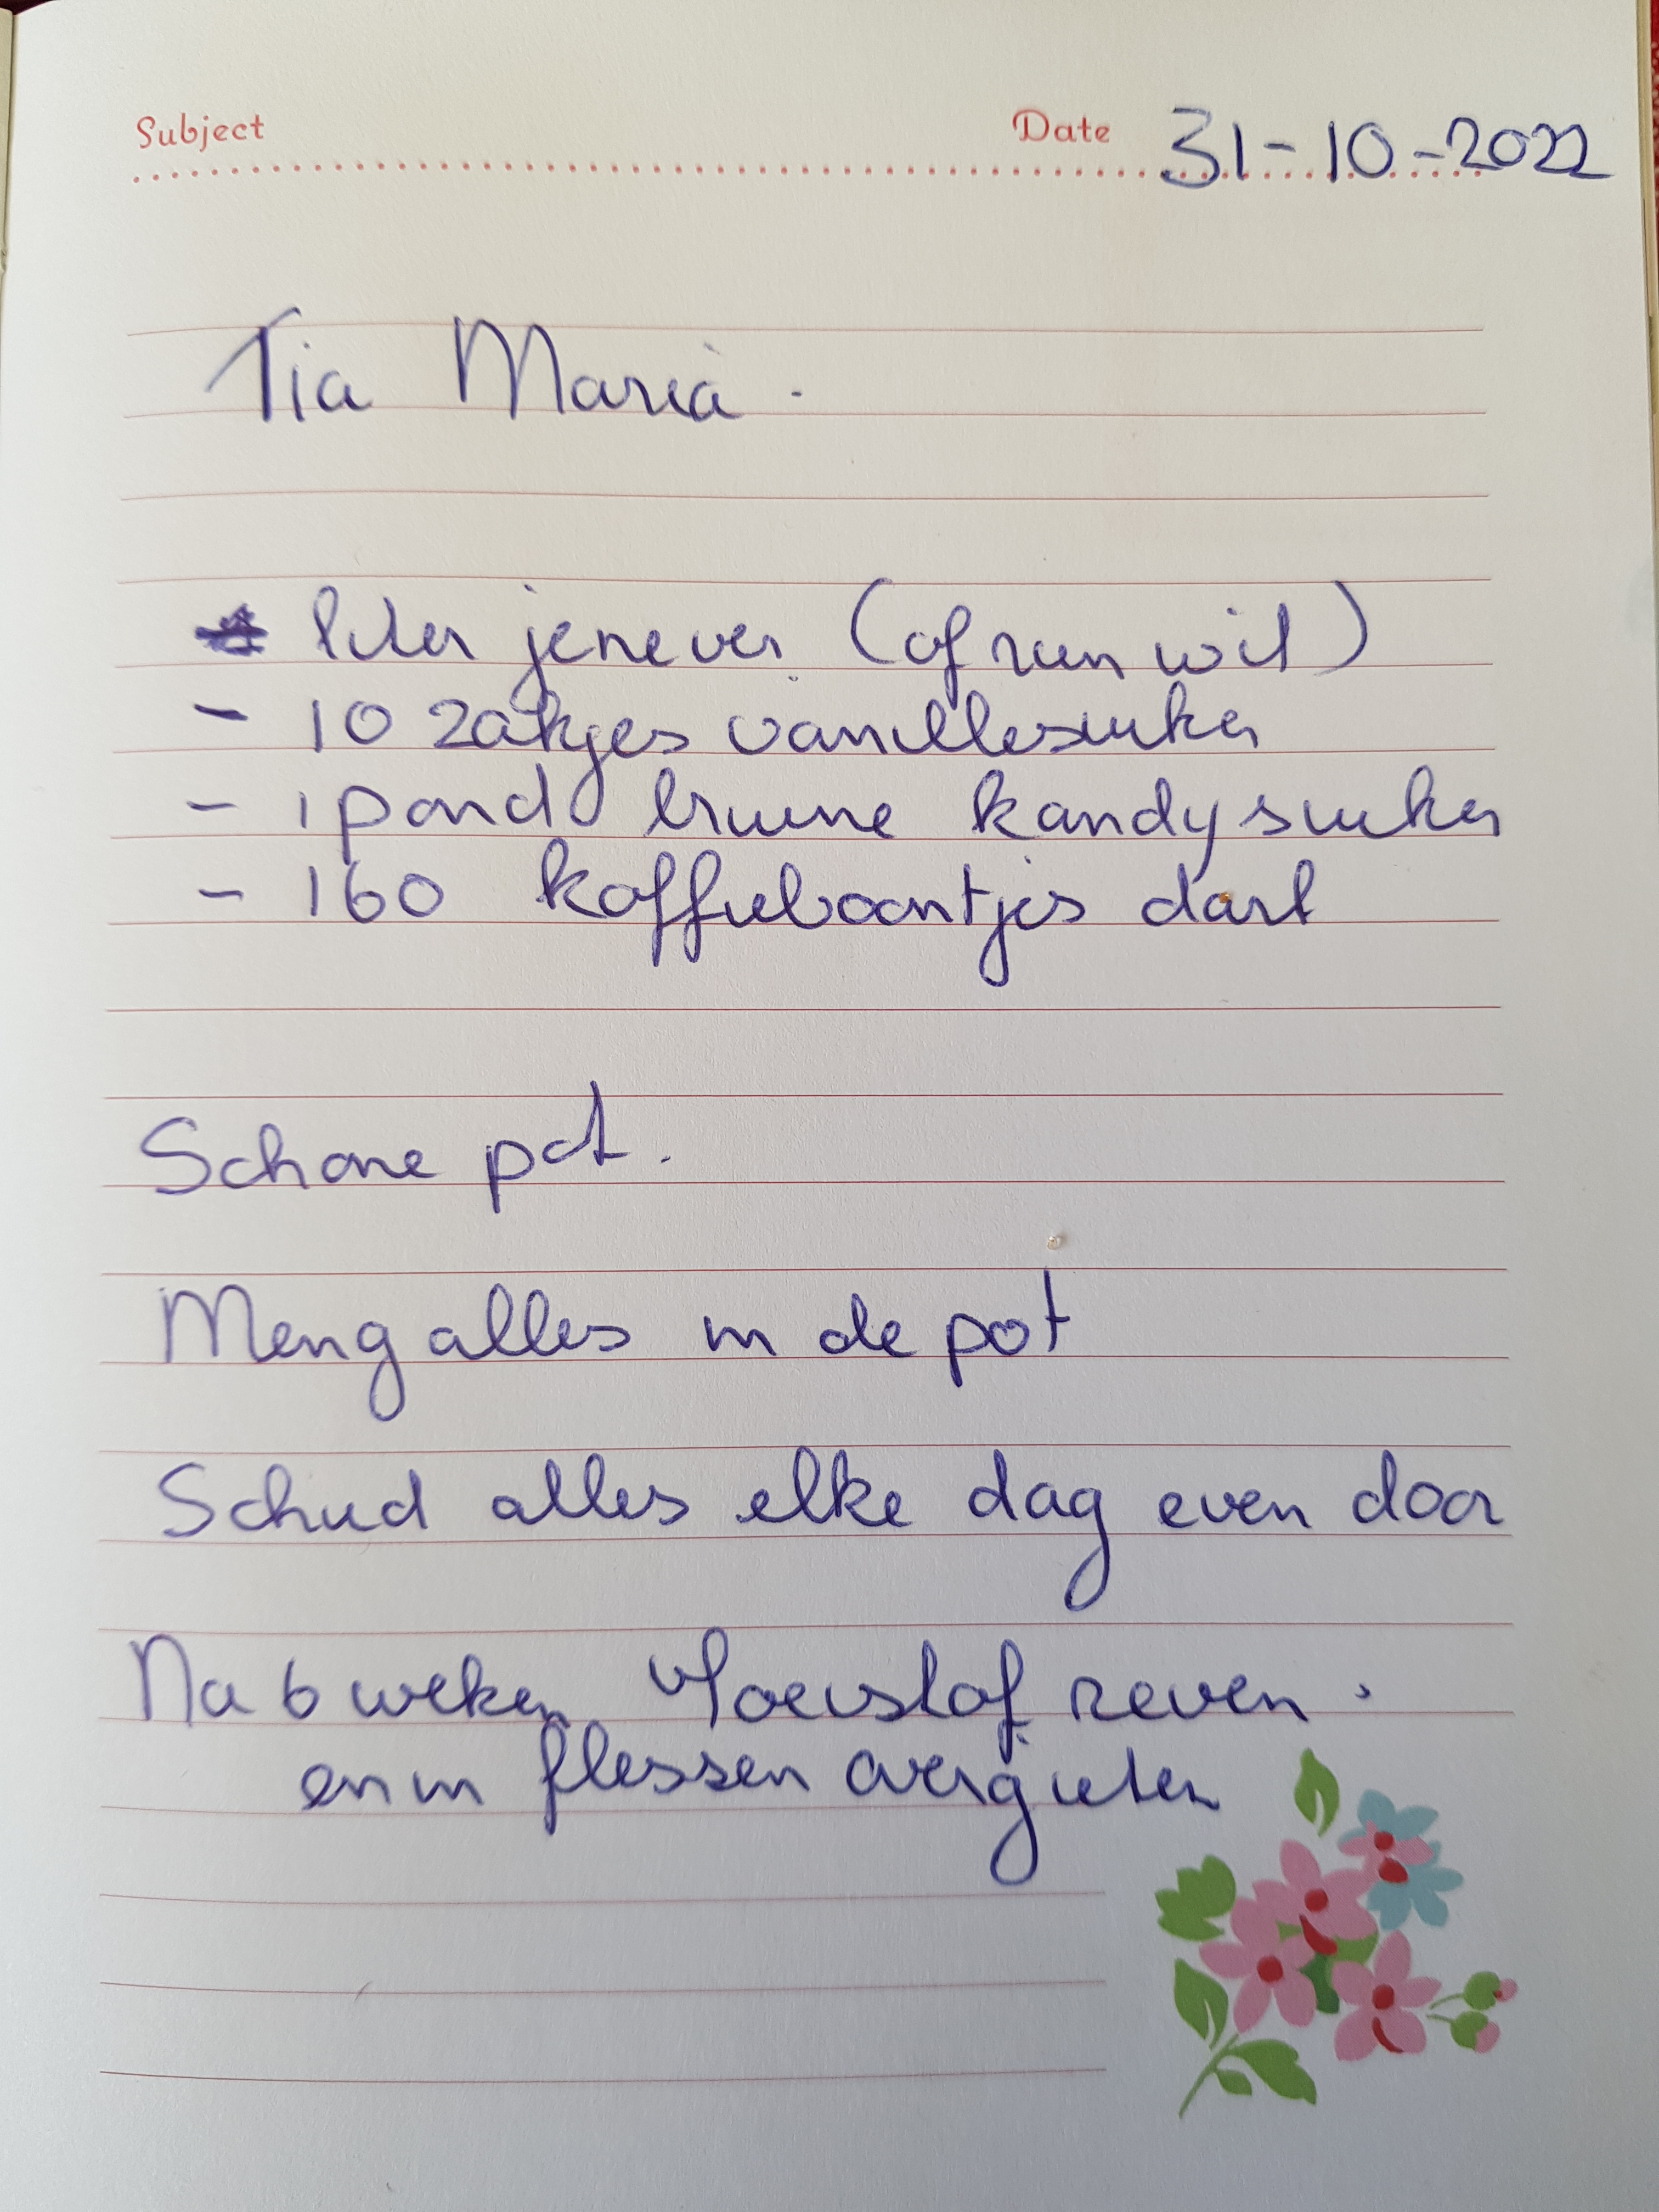 Subject
Date 31-10-2022
Tia Maria.
liter jenever (of rum wit)
- 10 zakjes vanillesuiker
- 1 pond bruine kandysuiker
- 160 koffieboontjes
Schone pot.
Meng alles in de pot
Schud alles elke dag even door
Na 6 weken vloeistof zeven.
en in flessen overgieten